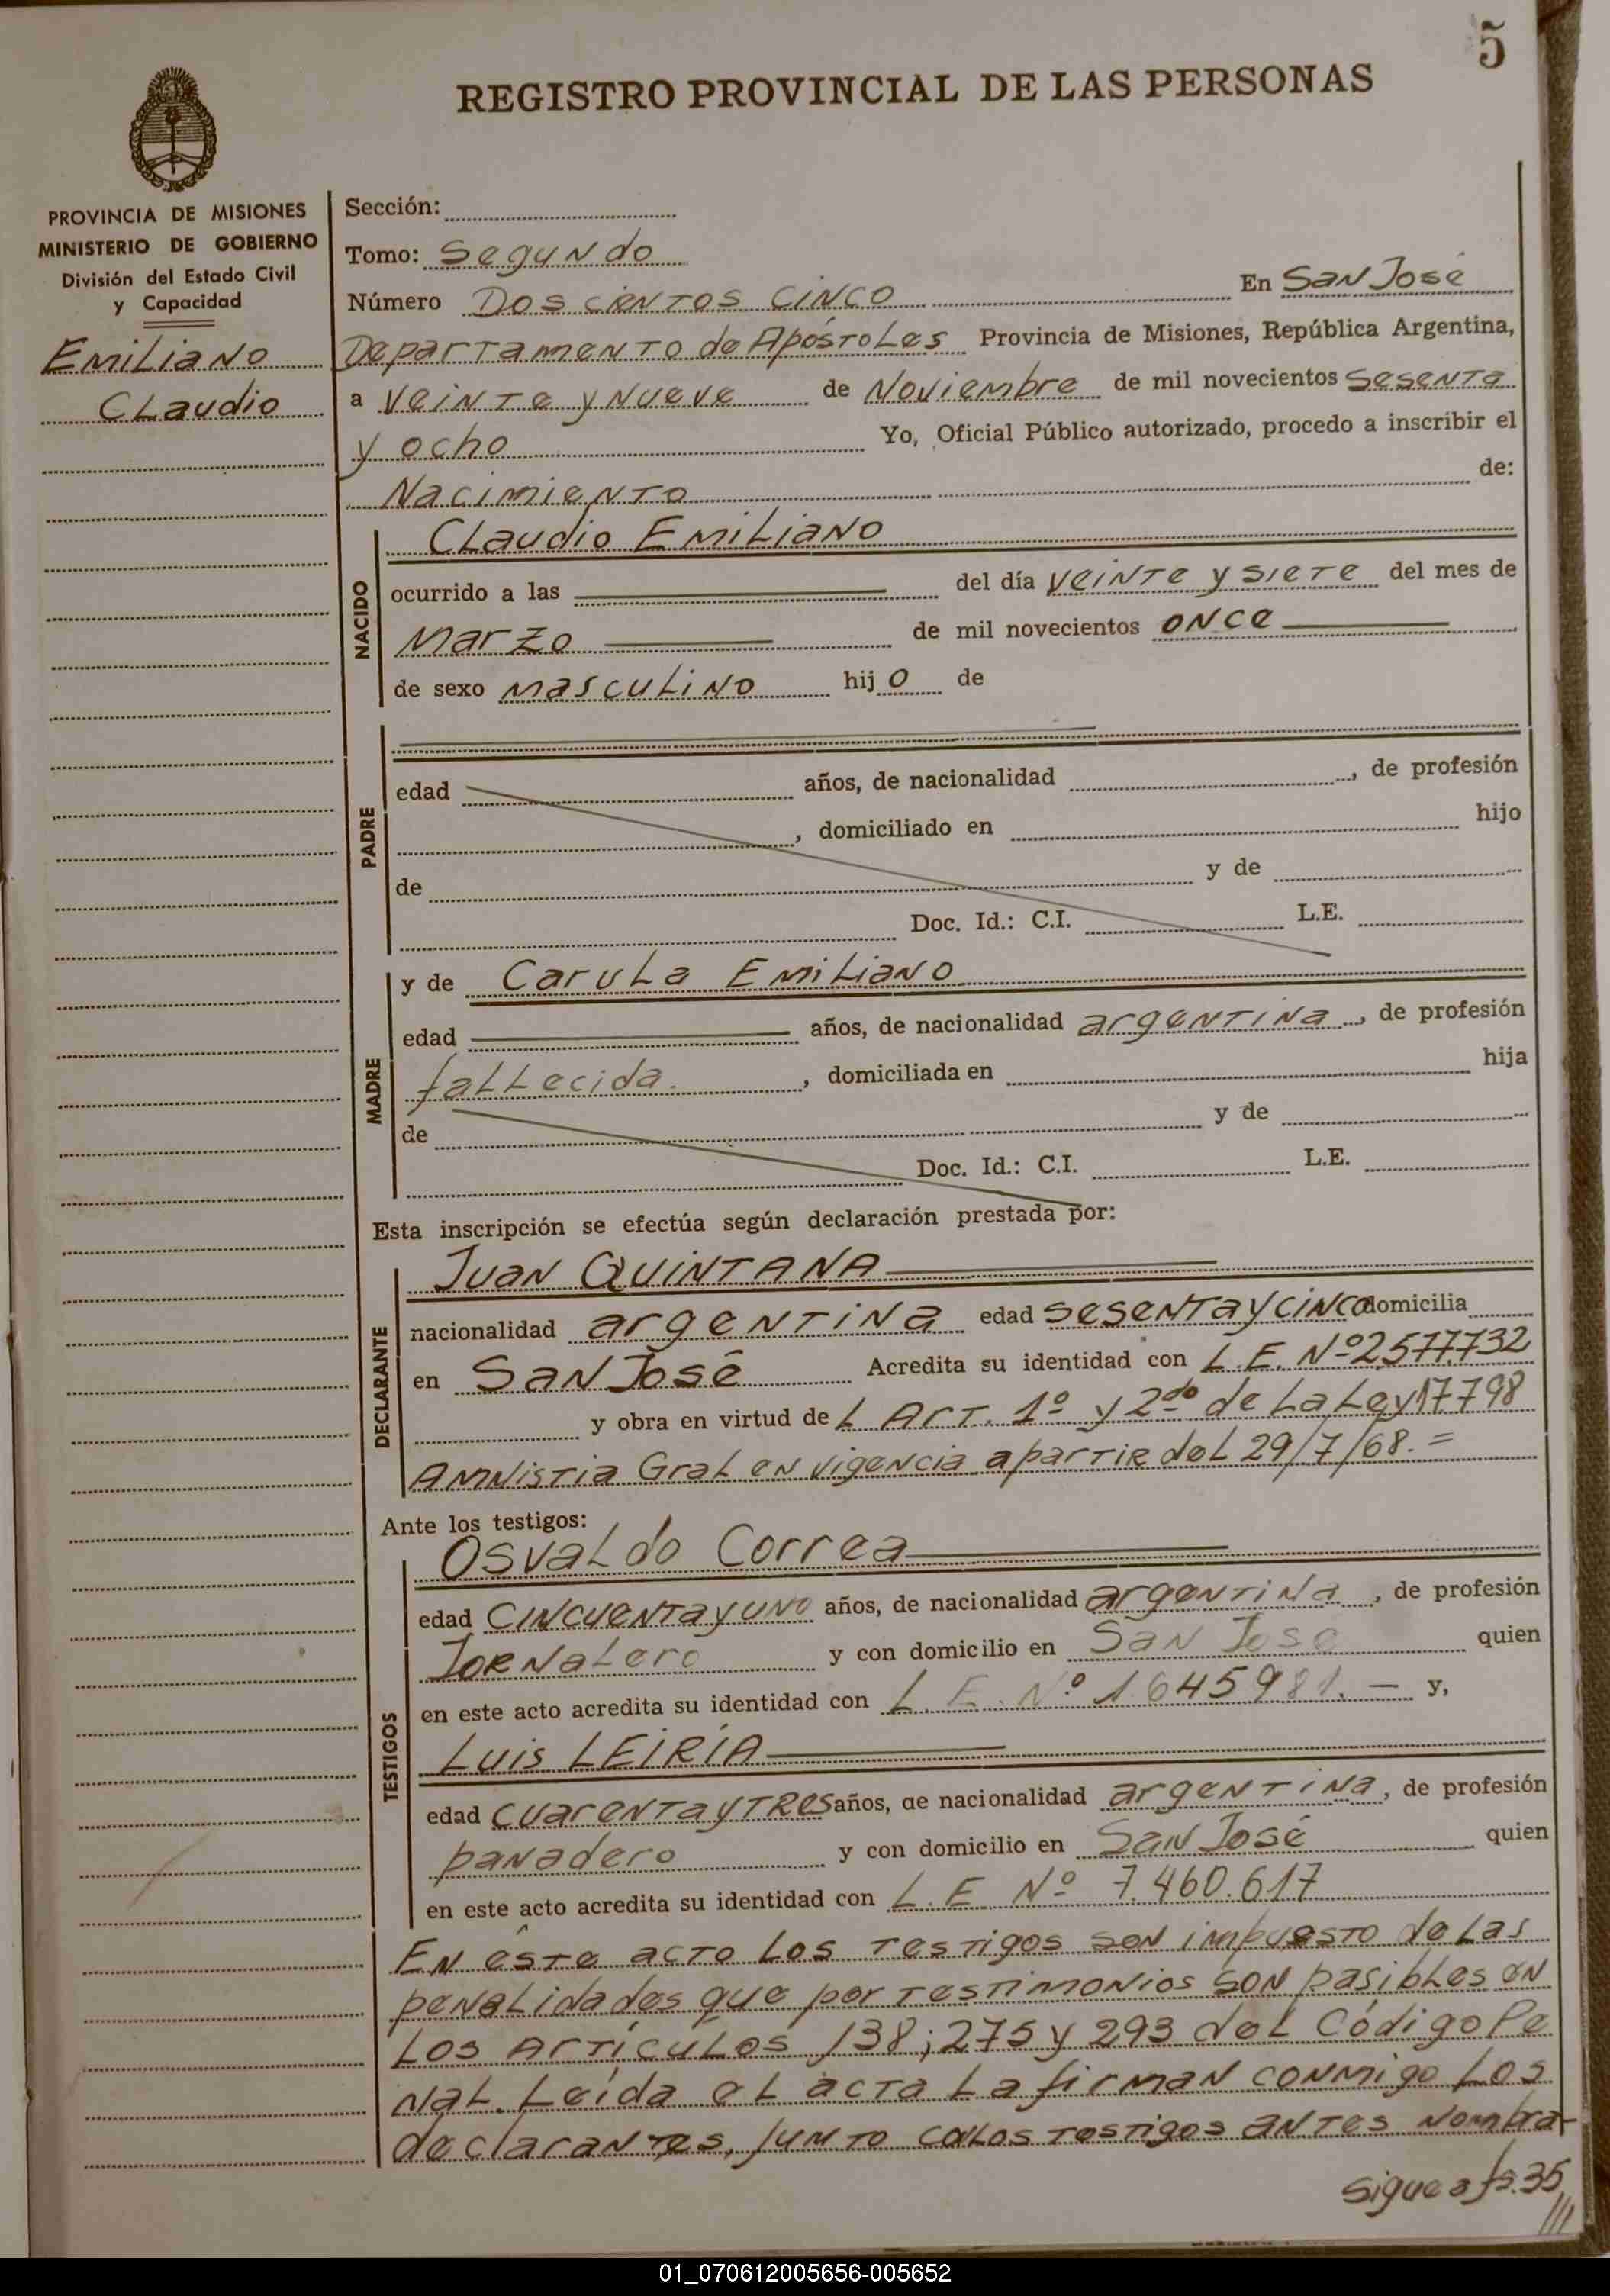 5
REGISTRO PROVINCIAL DE LAS PERSONAS
PROVINCIA DE MISIONES
MINISTERIO DE GOBIERNO
División del Estado Civil
y Capacidad
Emiliano
Claudio
Sección:
Tomo: Segundo
Número Dos cientos cinco En San José
Departamento de Apóstoles Provincia de Misiones, República Argentina,
a veinte y nueve de Noviembre de mil novecientos sesenta
y ocho Yo, Oficial Público autorizado, procedo a inscribir el
Nacimiento de:
NACIDO
Claudio Emiliano
ocurrido a las del día veinte y siete del mes de
Marzo de mil novecientos once
de sexo masculino hijo de
PADRE
edad años, de nacionalidad , de profesión
, domiciliado en hijo
de y de
Doc. Id.: C.I. L.E.
MADRE
y de Carula Emiliano
edad años, de nacionalidad argentina, de profesión
fallecida. , domiciliada en hija
de y de
Doc. Id.: C.I. L.E.
Esta inscripción se efectúa según declaración prestada por:
DECLARANTE
Juan Quintana
nacionalidad argentina edad sesenta y cinco domicilia
en San José Acredita su identidad con L.E. Nº 2.577.732
y obra en virtud del Art. 1º y 2do de la Ley 17.798
Amnistia Gral en vigencia a partir del 29/7/68. =
Ante los testigos:
TESTIGOS
Osvaldo Correa
edad cincuenta y uno años, de nacionalidad argentina, de profesión
Jornalero y con domicilio en San Jose quien
en este acto acredita su identidad con L.E. Nº 1.645981. — y,
Luis LEIRÍA
edad cuarenta y tres años, de nacionalidad argentina, de profesión
panadero y con domicilio en San José quien
en este acto acredita su identidad con L.E Nº 7.460.617
En éste acto los testigos son impuesto de las
penalidades que por testimonios son pasibles en
los Artículos 138; 275 y 293 del Código Pe
nal. Leída el acta la firman conmigo los
declarantes, junto con los testigos antes nombra-
sigue a fs. 35 ///
01_070612005656-005652